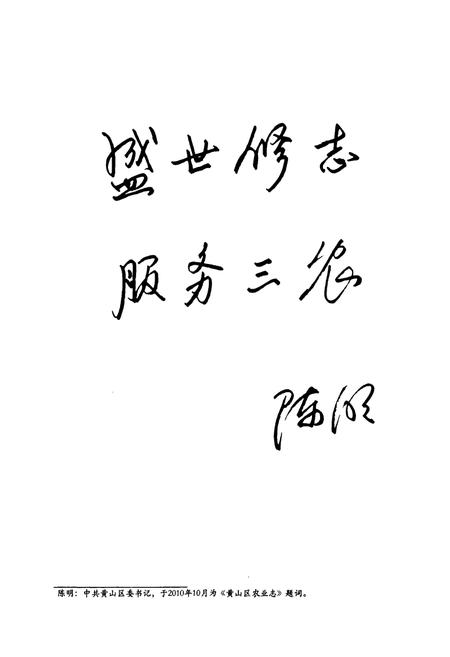 盛世修志
服务三农
陈明
陈明：中共黄山区委书记，于2010年10月为《黄山区农业志》题词。